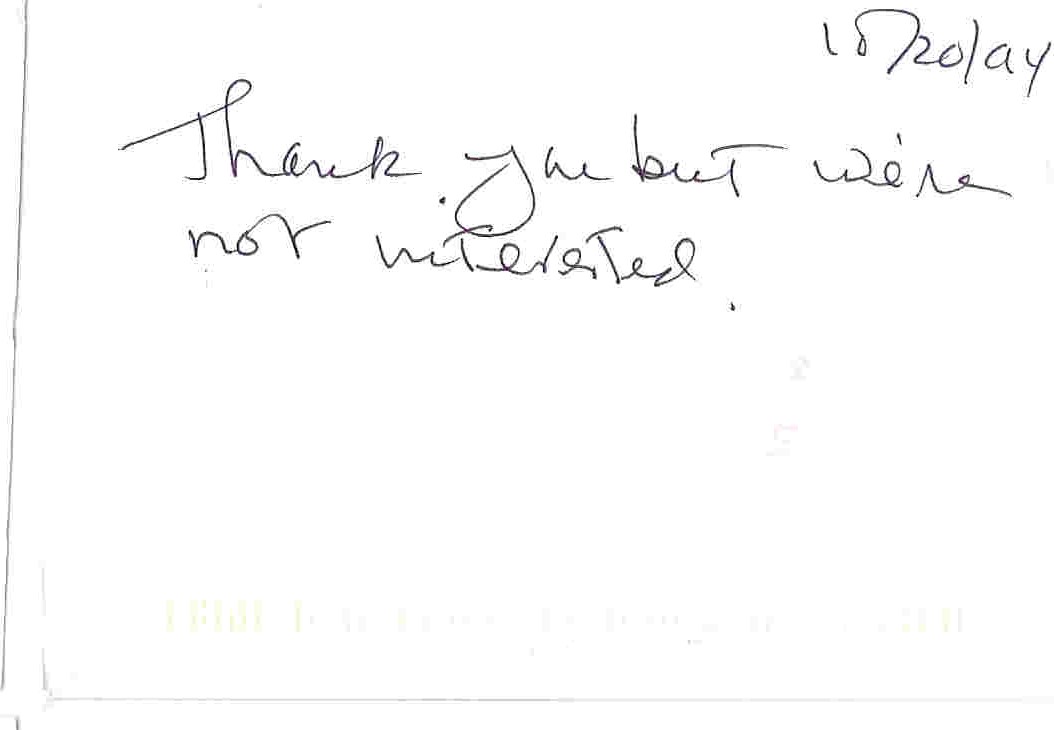 10/20/04
Thank you but we're
not interested.